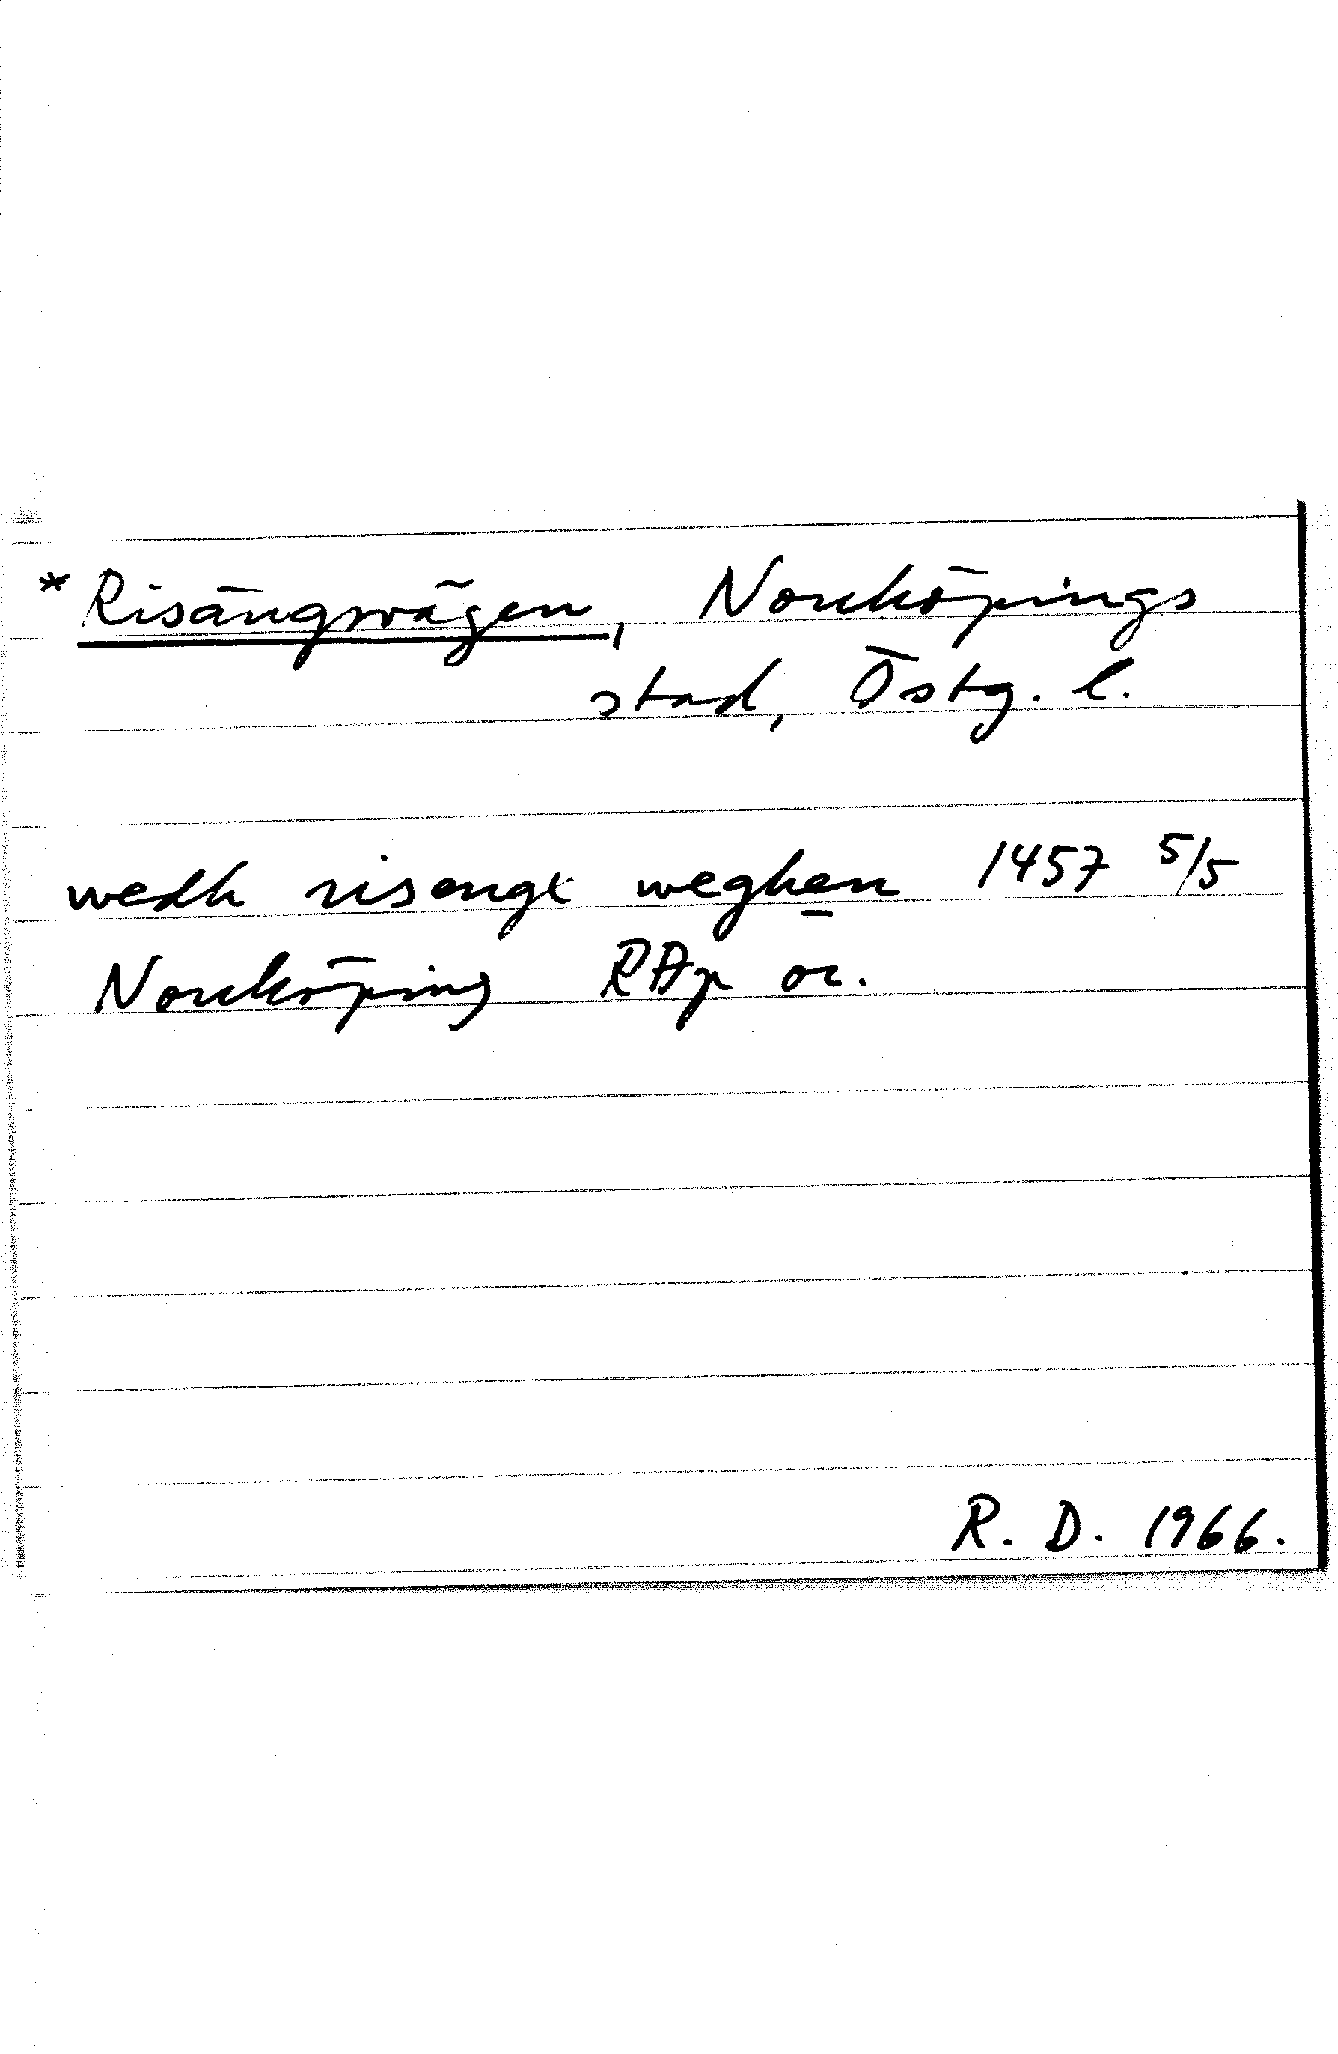 * Risängsvägen, Norrköpings
stad, Östg. l.
wedh risengx weghen 1457 5/5
Norrköping RAp or.
R. D. 1966.